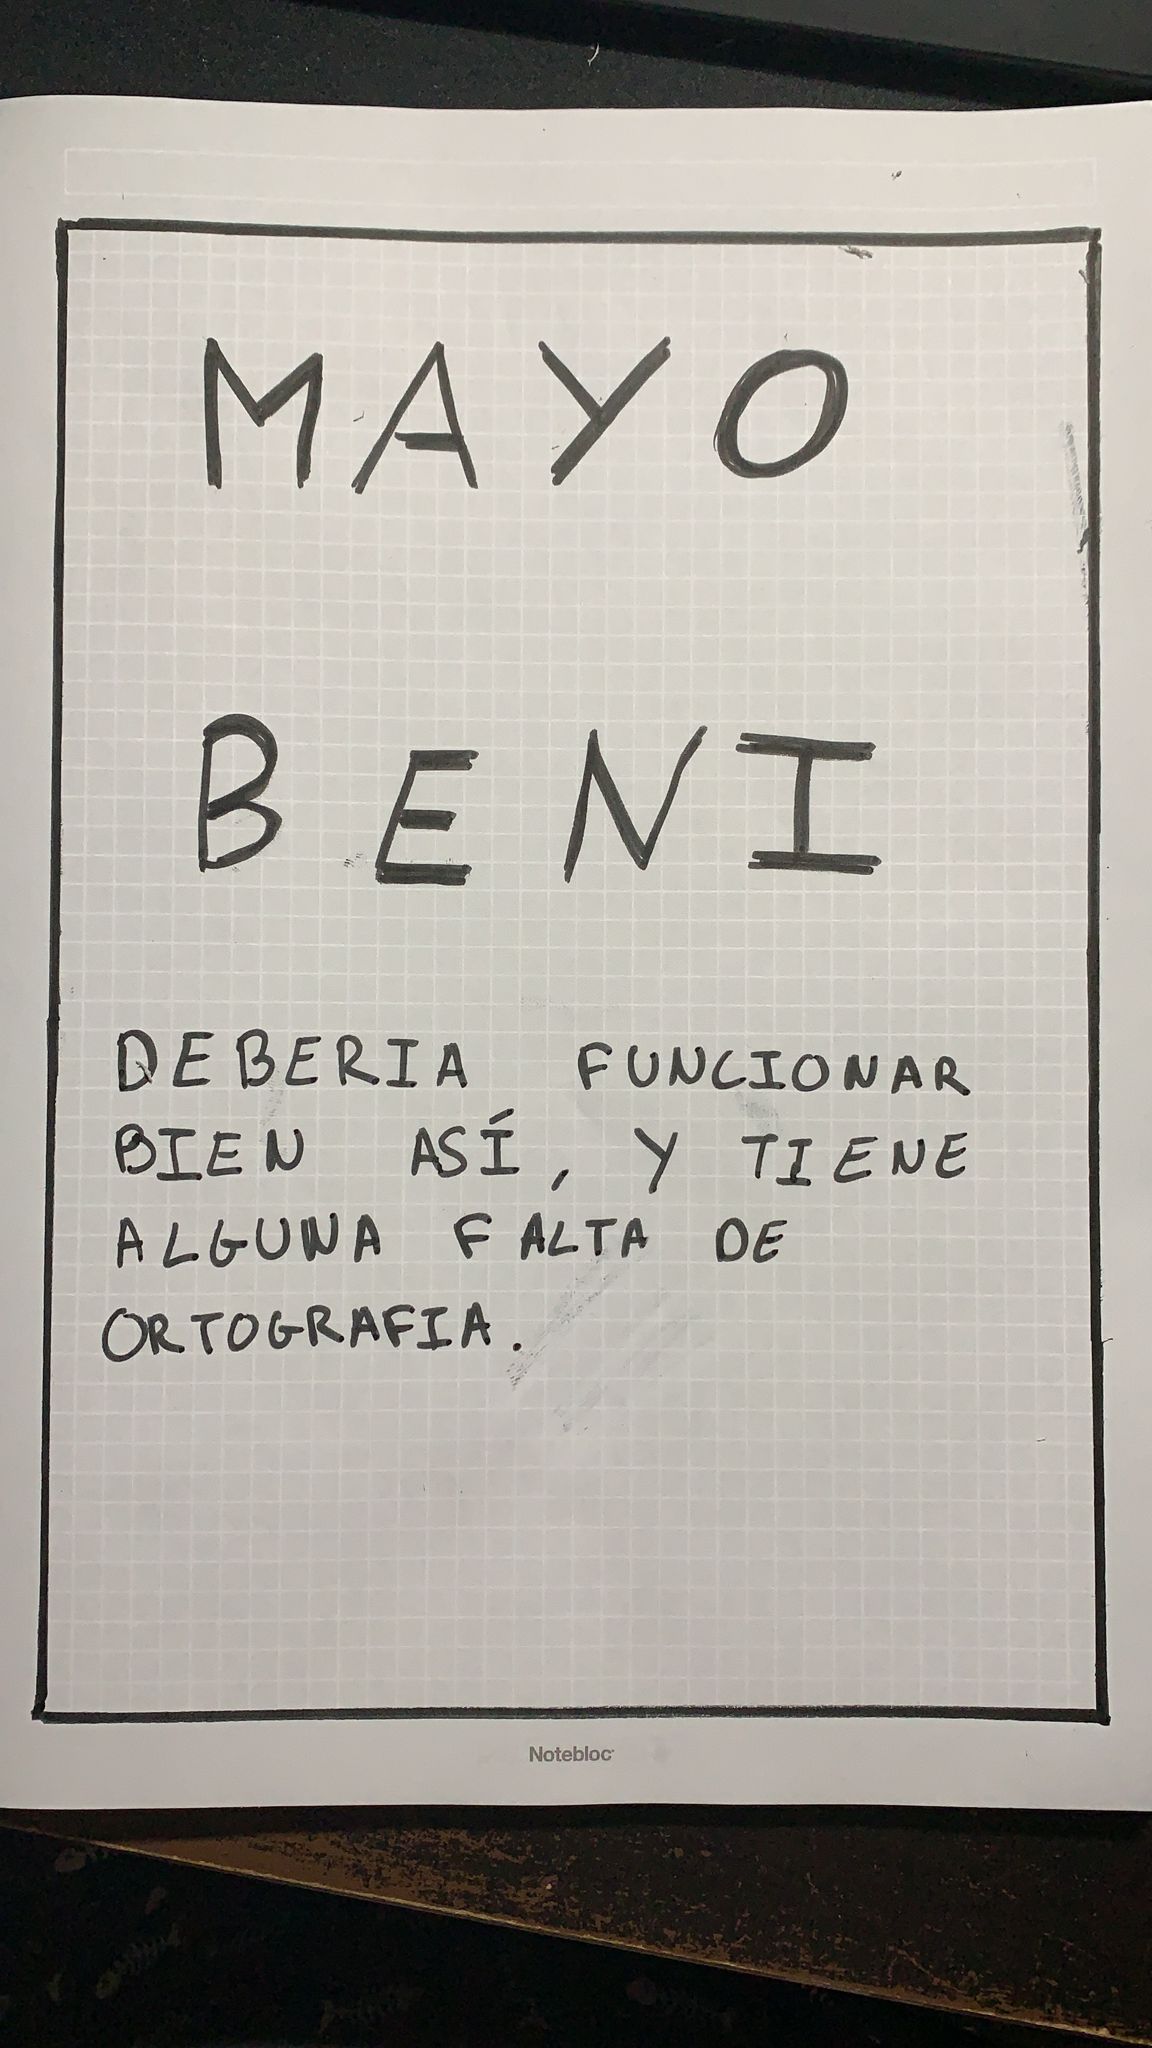 MAYO
BENI
DEBERIA FUNCIONAR
BIEN ASÍ, Y TIENE
ALGUNA FALTA DE
ORTOGRAFIA.
Notebloc